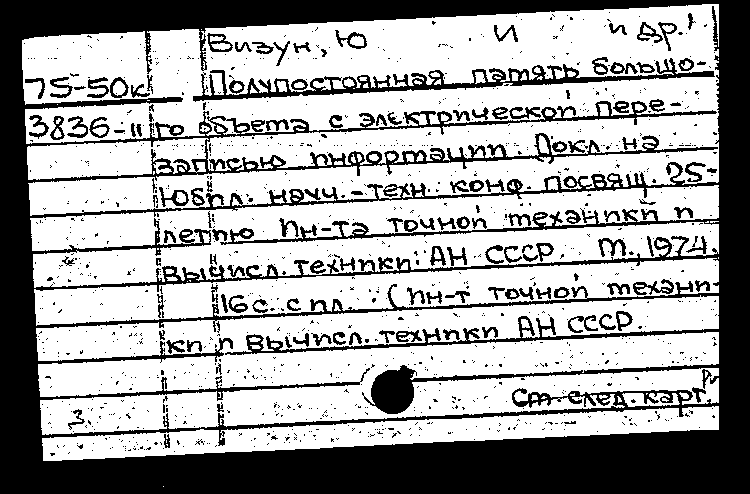 Визун, Ю И и др.
75-50к Полупостоянная память большо-
3836-II го объема с электрической пере-
записью информации. Докл. на
Юбил. науч.-техн. конф. посвящ. 25-
летию Ин-та точной механики и
вычисл. техники АН СССР. М., 1974.
16 с. с ил. (Ин-т точной механи-
ки и вычисл. техники АН СССР.
См. след. карт.
3